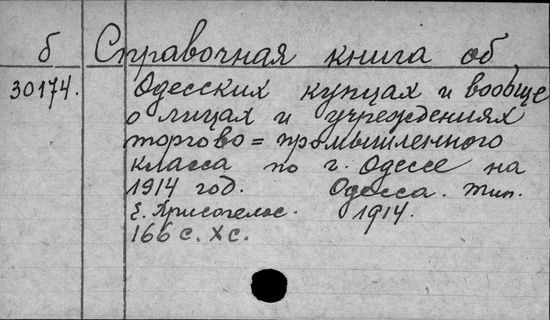 б Справочная книга об
30174. Одесских купцах и вообще
о лицах и учреждениях
торгово=промышленного
класса по г. Одессе на
1914 год. Одесса. тип.
Е. Хрисогелос. 1914.
166 с. XС.